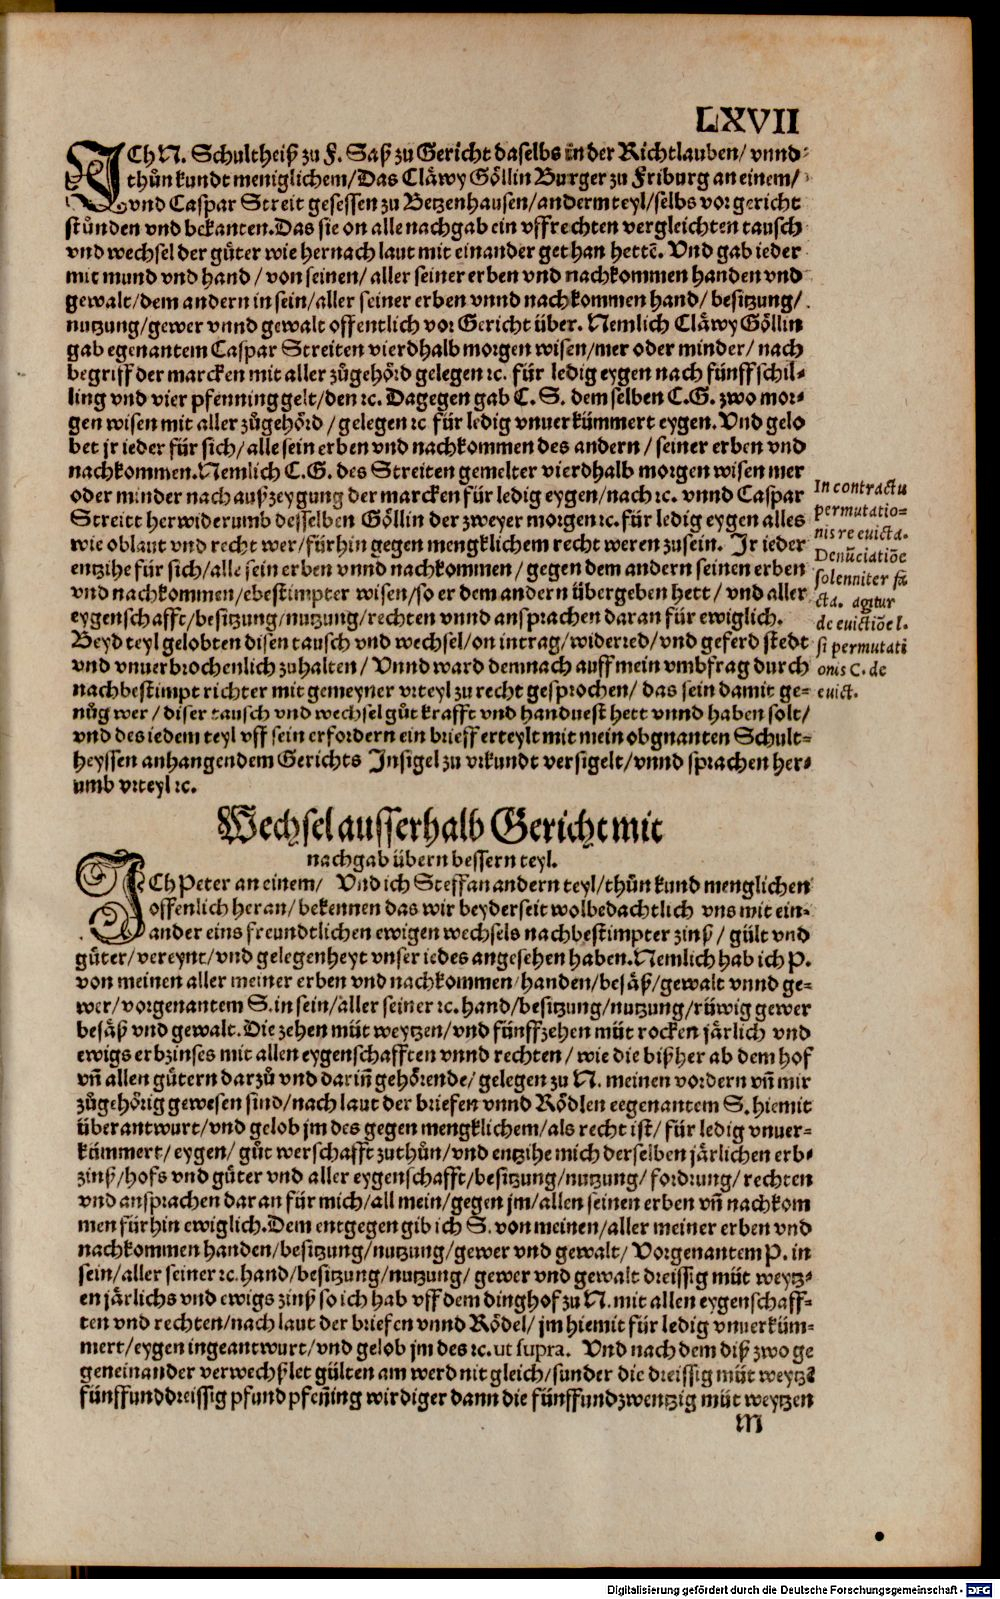 LXVII
ICh N. Schultheiß zu F. Saß zu Gericht daselbs in der Richtlauben/ vnnd
thůn kundt meniglichem/ Das Cläwy Göllin Burger zu Friburg an einem/
vnd Caspar Streit gesessen zu Betzenhausen/ anderm teyl/ selbs vor gericht
stůnden vnd bekanten. Das sie on alle nachgab ein vffrechten vergleichten tausch
vnd wechsel der gůter wie hernach laut mit einander gethan hettē. Vnd gab ieder
mit mund vnd hand/ von seinen/ aller seiner erben vnd nachkommen handen vnd
gewalt/ dem andern in sein/ aller seiner erben vnnd nachkommen hand/ besitzung/
nutzung/ gewer vnnd gewalt offentlich vor Gericht über. Nemlich Cläwy Göllin
gab egenantem Caspar Streiten vierdhalb morgen wisen/ mer oder minder/ nach
begriff der marcken mit aller zůgehörd gelegen ꝛc. für ledig eygen nach fünff schil-
ling vnd vier pfenning gelt/ den ꝛc. Dagegen gab C. S. dem selben C.G. zwo mor-
gen wisen mit aller zůgehörd/ gelegen ꝛc für ledig vnuerkümmert eygen. Vnd gelo
bet jr ieder für sich/ alle sein erben vnd nachkommen des andern/ seiner erben vnd
nachkommen. Nemlich C.G. des Streiten gemelter vierdhalb morgen wisen mer
oder minder nach außzeygung der marcken für ledig eygen/ nach ꝛc. vnnd Caspar
Streitt herwiderumb desselben Göllin der zweyer morgen ꝛc. für ledig eygen alles
wie oblaut vnd recht wer/ fürhin gegen mengklichem recht weren zusein. Jr ieder
entzihe für sich/ alle sein erben vnnd nachkommen/ gegen dem andern seinen erben
vnd nachkommen/ ebestimpter wisen/ so er dem andern übergeben hett/ vnd aller
eygenschafft/ besitzung/ nutzung/ rechten vnnd ansprachen daran für ewiglich.
Beyd teyl gelobten disen tausch vnd wechsel/ on intrag/ widerred/ vnd geferd stedt
vnd vnuerbrochenlich zuhalten/ Vnnd ward demnach auff mein vmbfrag durch
nachbestimpt richter mit gemeyner vrteyl zu recht gesprochen/ das sein damit ge-
nůg wer/ diser tausch vnd wechsel gůt krafft vnd handuest hett vnnd haben solt/
vnd des iedem teyl vff sein erfordern ein brieff erteylt mit mein obgnanten Schult-
heyssen anhangendem Gerichts Insigel zu vrkundt versigelt/ vnnd sprachen her-
umb vrteyl ꝛc.
In contractu
permutatio-
nis re euicta.
Denūciatiōe
solenniter fa
cta. agitur
de euictiōe l.
si permutati
onis C. de
euict.
Wechsel ausserhalb Gericht mit
nachgab übern bessern teyl.
ICh Peter an einem/ Vnd ich Steffan andern teyl/ thůn kund menglichen
offenlich heran/ bekennen das wir beyderseit wolbedachtlich vns mit ein-
ander eins freundtlichen ewigen wechsels nachbestimpter zinß/ gült vnd
gůter/ vereynt/ vnd gelegenheyt vnser iedes angesehen haben. Nemlich hab ich P.
von meinen aller meiner erben vnd nachkommen/ handen/ besäß/ gewalt vnnd ge-
wer/ vorgenantem S. in sein/ aller seiner ꝛc. hand/ besitzung/ nutzung/ rüwig gewer
besäß vnd gewalt. Die zehen müt weytzen/ vnd fünffzehen müt rocken järlich vnd
ewigs erbzinses mit allen eygenschafften vnnd rechten/ wie die bißher ab dem hof
vn̄ allen gůtern darzů vnd darin̄ gehörende/ gelegen zu N. meinen vordern vn̄ mir
zůgehörig gewesen sind/ nach laut der briefen vnnd Rödlen eegenantem S. hiemit
überantwurt/ vnd gelob jm des gegen mengklichem/ als recht ist/ für ledig vnuer-
kümmert/ eygen/ gůt werschafft zuthůn/ vnd entzihe mich derselben järlichen erb-
zinß/ hofs vnd gůter vnd aller eygenschafft/ besitzung/ nutzung/ fordrung/ rechten
vnd ansprachen daran für mich/ all mein/ gegen jm/ allen seinen erben vn̄ nachkom
men fürhin ewiglich. Dem entgegen gib ich S. von meinen/ aller meiner erben vnd
nachkommen handen/ besitzung/ nutzung/ gewer vnd gewalt/ Vorgenantem P. in
sein/ aller seiner ꝛc. hand/ besitzung/ nutzung/ gewer vnd gewalt dreissig müt weytz-
en järlichs vnd ewigs zinß so ich hab vff dem dinghof zu N. mit allen eygenschaff-
ten vnd rechten/ nach laut der briefen vnnd Rödel/ jm hiemit für ledig vnuerküm-
mert/ eygen ingeantwurt/ vnd gelob jm des ꝛc. ut supra. Vnd nach dem diß zwo ge
geneinander verwechßlet gülten am werd nit gleich/ sunder die dreissig müt weytzē
fünffunddreissig pfund pfen̄ing wirdiger dann die fünffundzwentzig müt weytzen
M
Digitalisierung gefördert durch die Deutsche Forschungsgemeinschaft - DFG